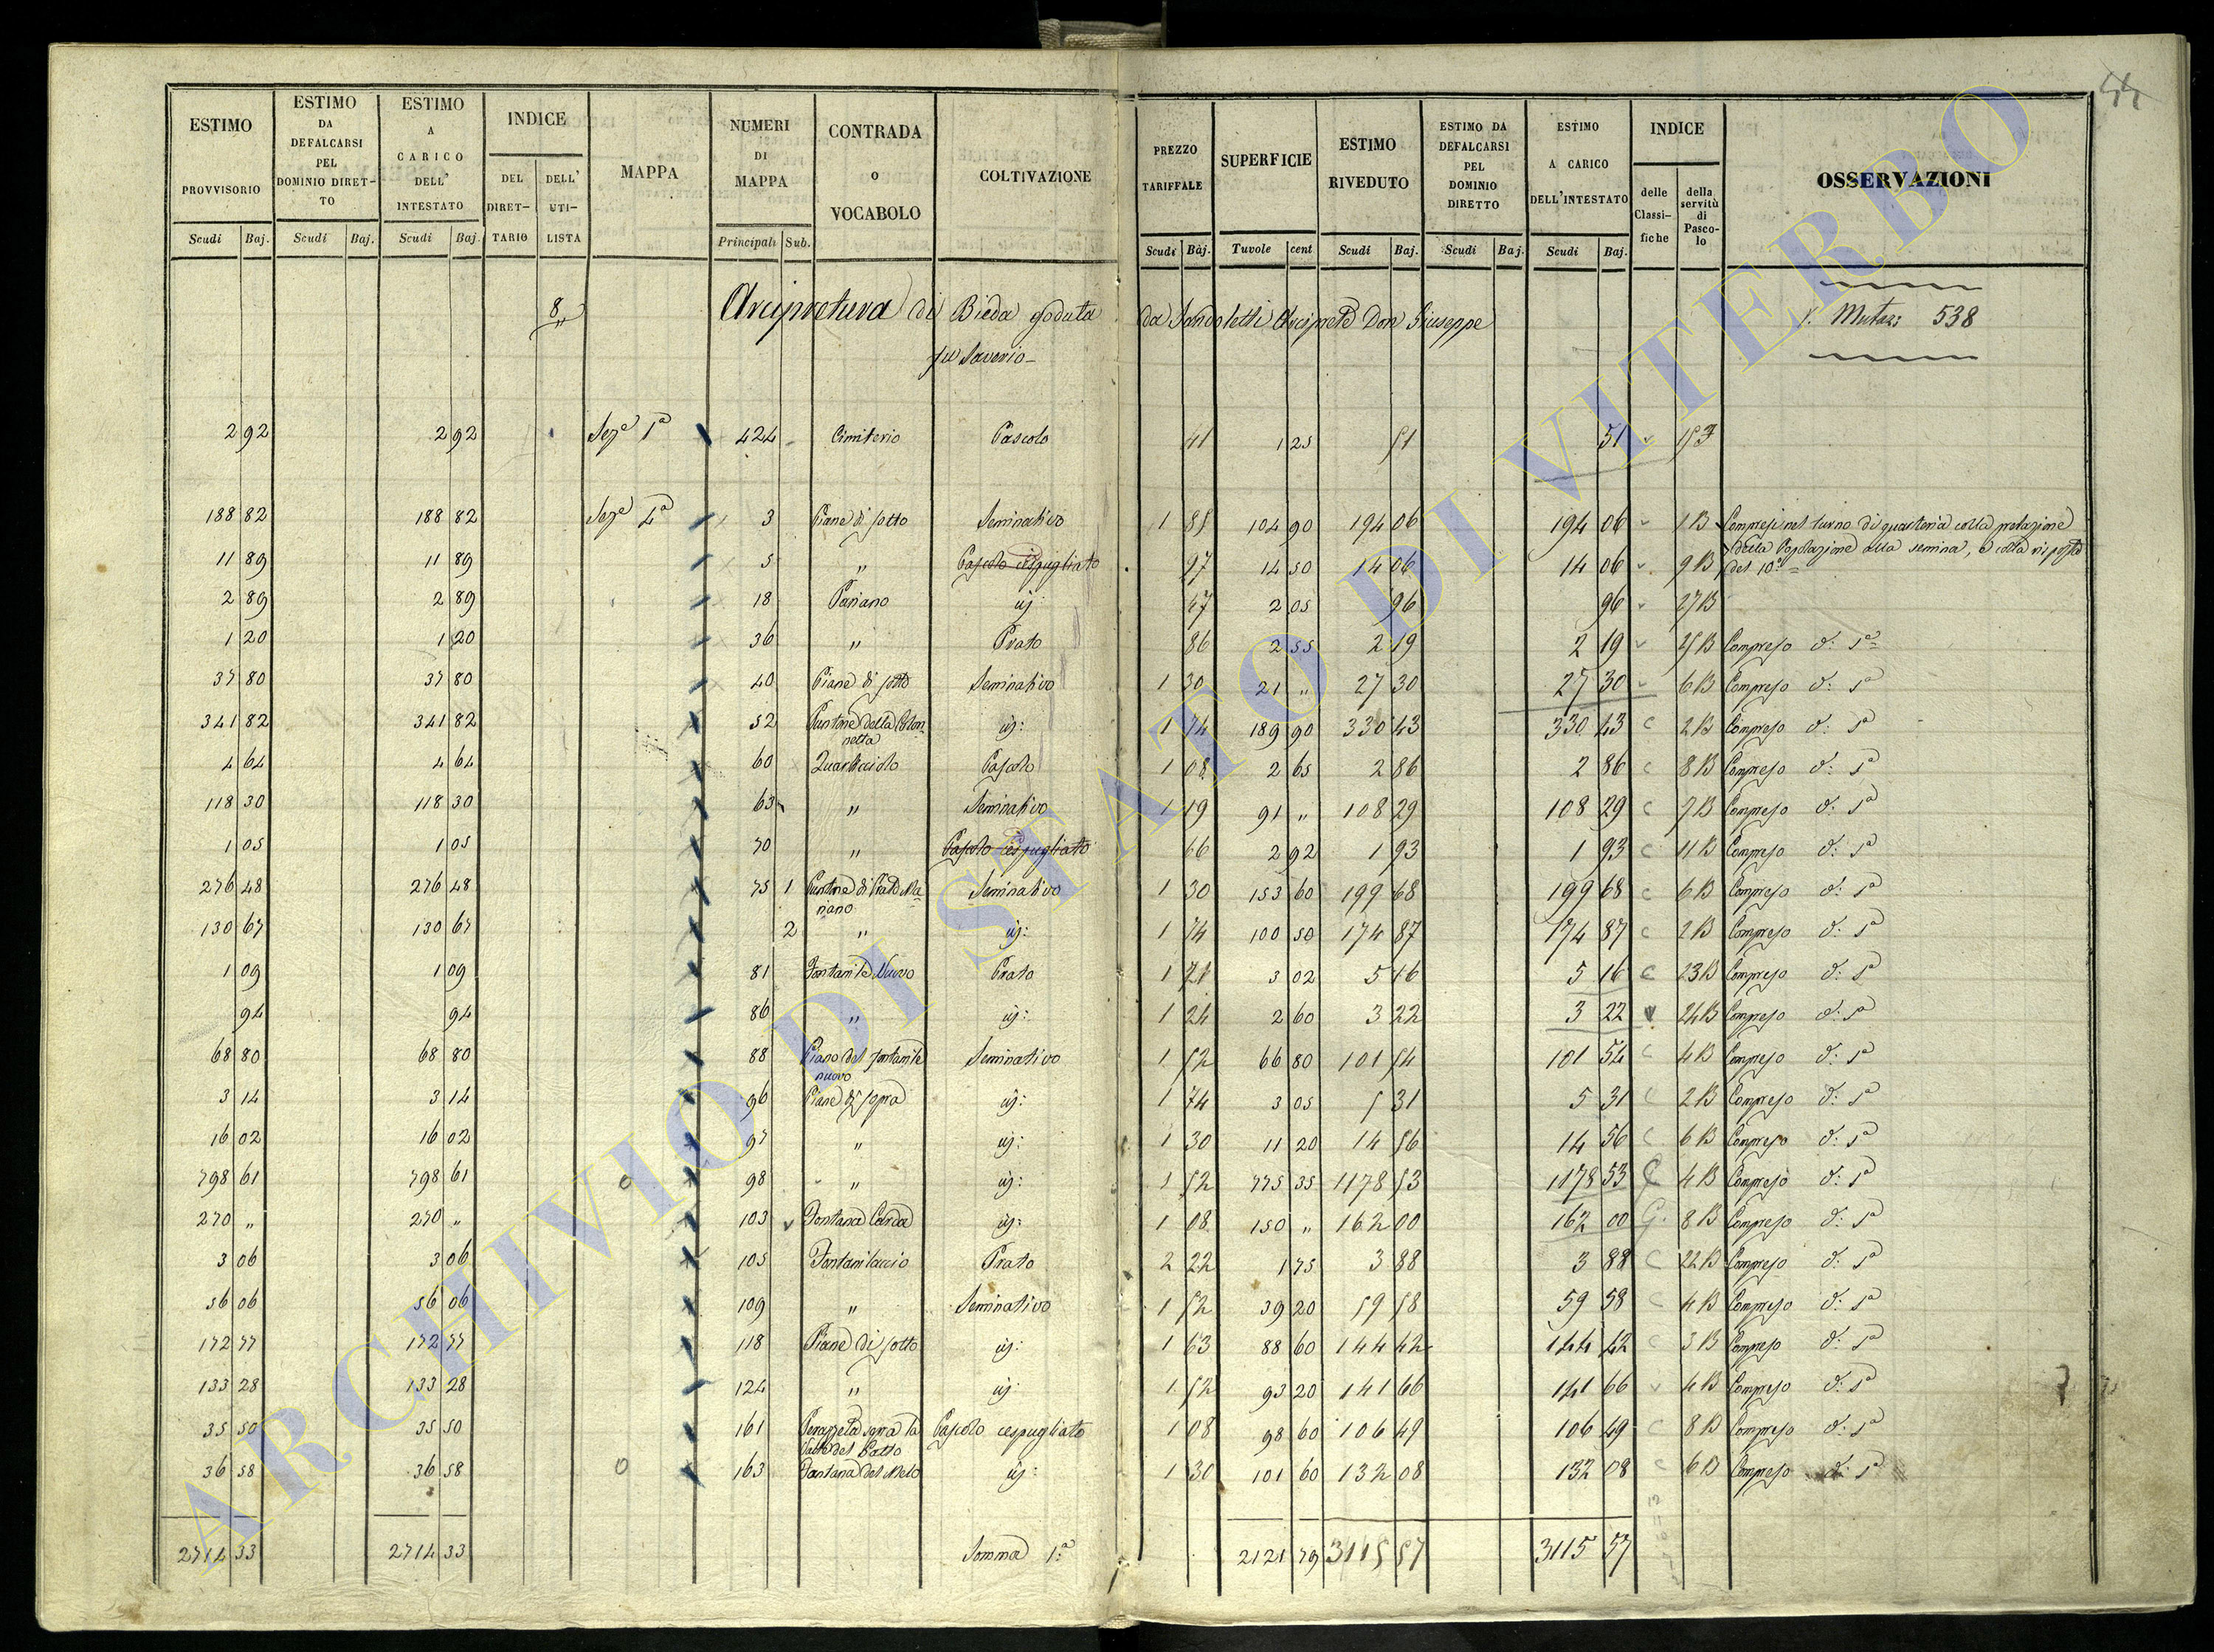 44
ESTIMO PROVVISORIO Scudi Baj. | ESTIMO DA DEFALCARSI PEL DOMINIO DIRET-TO Scudi Baj. | ESTIMO A CARICO DELL' INTESTATO Scudi Baj. | INDICE DEL DIRET-TARIO DELL' UTI-LISTA | MAPPA | NUMERI DI MAPPA Principali Sub. | CONTRADA o VOCABOLO | COLTIVAZIONE | PREZZO TARIFFALE Scudi Baj. | SUPERFICIE Tavole cent | ESTIMO RIVEDUTO Scudi Baj. | ESTIMO DA DEFALCARSI PEL DOMINIO DIRETTO Scudi Baj. | ESTIMO A CARICO DELL'INTESTATO Scudi Baj. | INDICE delle Classi-fiche della servitù di Pasco-lo | OSSERVAZIONI
8 Arcipretura di Bieda goduta da Sandoletti Arciprete Don Giuseppe V. Mutaz: 538
fu Saverio
2 92 | 2 92 | Seze 1a | 424 | Cimiterio | Pascolo | 41 | 1 25 | 51 | 51 | 153
188 82 | 188 82 | Seze 4a | 3 | Piane di sotto | Seminativo | 1 85 | 104 90 | 194 06 | 194 06 | 1 B | Compresi nel turno di quarteria colla prelazione
della Popolazione alla semina, e colla risposta
11 89 | 11 89 | 5 | " | Pascolo cespugliato | 97 | 14 50 | 14 06 | 14 06 | 9 B | del 10
2 89 | 2 89 | 18 | Pariano | id: | 47 | 2 05 | 96 | 96 | 27 B
1 20 | 1 20 | 36 | " | Prato | 86 | 2 55 | 2 19 | 2 19 | 25 B | Compreso d: sa
37 80 | 37 80 | 40 | Piane di sotto | Seminativo | 1 30 | 21 " | 27 30 | 27 30 | 6 B | Compreso d: sa
341 82 | 341 82 | 52 | Puntone della Colon-
netta | id: | 1 74 | 189 90 | 330 43 | 330 43 | C | 2 B | Compreso d: sa
4 64 | 4 64 | 60 | Quarticciolo | Pascolo | 1 08 | 2 65 | 2 86 | 2 86 | C | 8 B | Compreso d: sa
118 30 | 118 30 | 63 | " | Seminativo | 1 19 | 91 " | 108 29 | 108 29 | C | 7 B | Compreso d: sa
1 05 | 1 05 | 70 | " | Pascolo cespugliato | 66 | 2 92 | 1 93 | 1 93 | C | 11 B | Compreso d: sa
276 48 | 276 48 | 75 1 | Puntone di Prato Ma-
riano | Seminativo | 1 30 | 153 60 | 199 68 | 199 68 | C | 6 B | Compreso d: sa
130 67 | 130 67 | 2 | " | id: | 1 74 | 100 50 | 174 87 | 174 87 | C | 2 B | Compreso d: sa
1 09 | 1 09 | 81 | Fontanile Nuovo | Prato | 1 71 | 3 02 | 5 16 | 5 16 | C | 23 B | Compreso d: sa
94 | 94 | 86 | " | id: | 1 24 | 2 60 | 3 22 | 3 22 | 24 B | Compreso d: sa
68 80 | 68 80 | 88 | Piano del fontanile
nuovo | Seminativo | 1 52 | 66 80 | 101 54 | 101 54 | C | 4 B | Compreso d: sa
3 14 | 3 14 | 96 | Piane di sopra | id: | 1 74 | 3 05 | 5 31 | 5 31 | C | 2 B | Compreso d: sa
16 02 | 16 02 | 97 | " | id: | 1 30 | 11 20 | 14 56 | 14 56 | C | 6 B | Compreso d: sa
798 61 | 798 61 | 98 | " | id: | 1 52 | 775 35 | 1178 53 | 1178 53 | C | 4 B | Compreso d: sa
270 " | 270 " | 103 | Fontana Carda | id: | 1 08 | 150 " | 162 00 | 162 00 | C | 8 B | Compreso d: sa
3 06 | 3 06 | 105 | Fontanilaccio | Prato | 2 22 | 1 75 | 3 88 | 3 88 | C | 22 B | Compreso d: sa
56 06 | 56 06 | 109 | " | Seminativo | 1 52 | 39 20 | 59 58 | 59 58 | C | 4 B | Compreso d: sa
172 77 | 172 77 | 118 | Piane di sotto | id: | 1 63 | 88 60 | 144 42 | 144 42 | C | 3 B | Compreso d: sa
133 28 | 133 28 | 124 | " | id: | 1 52 | 93 20 | 141 66 | 141 66 | 4 B | Compreso d: sa
35 50 | 35 50 | 161 | sopra la
del Gatto | Pascolo cespugliato | 1 08 | 98 60 | 106 49 | 106 49 | C | 8 B | Compreso d: sa
36 58 | 36 58 | 163 | Fontana del Melo | id: | 1 30 | 101 60 | 132 08 | 132 08 | C | 6 B | Compreso d: sa
2714 33 | 2714 33 | Somma 1a | 2121 79 | 3115 57 | 3115 57
ARCHIVIO DI STATO DI VITERBO